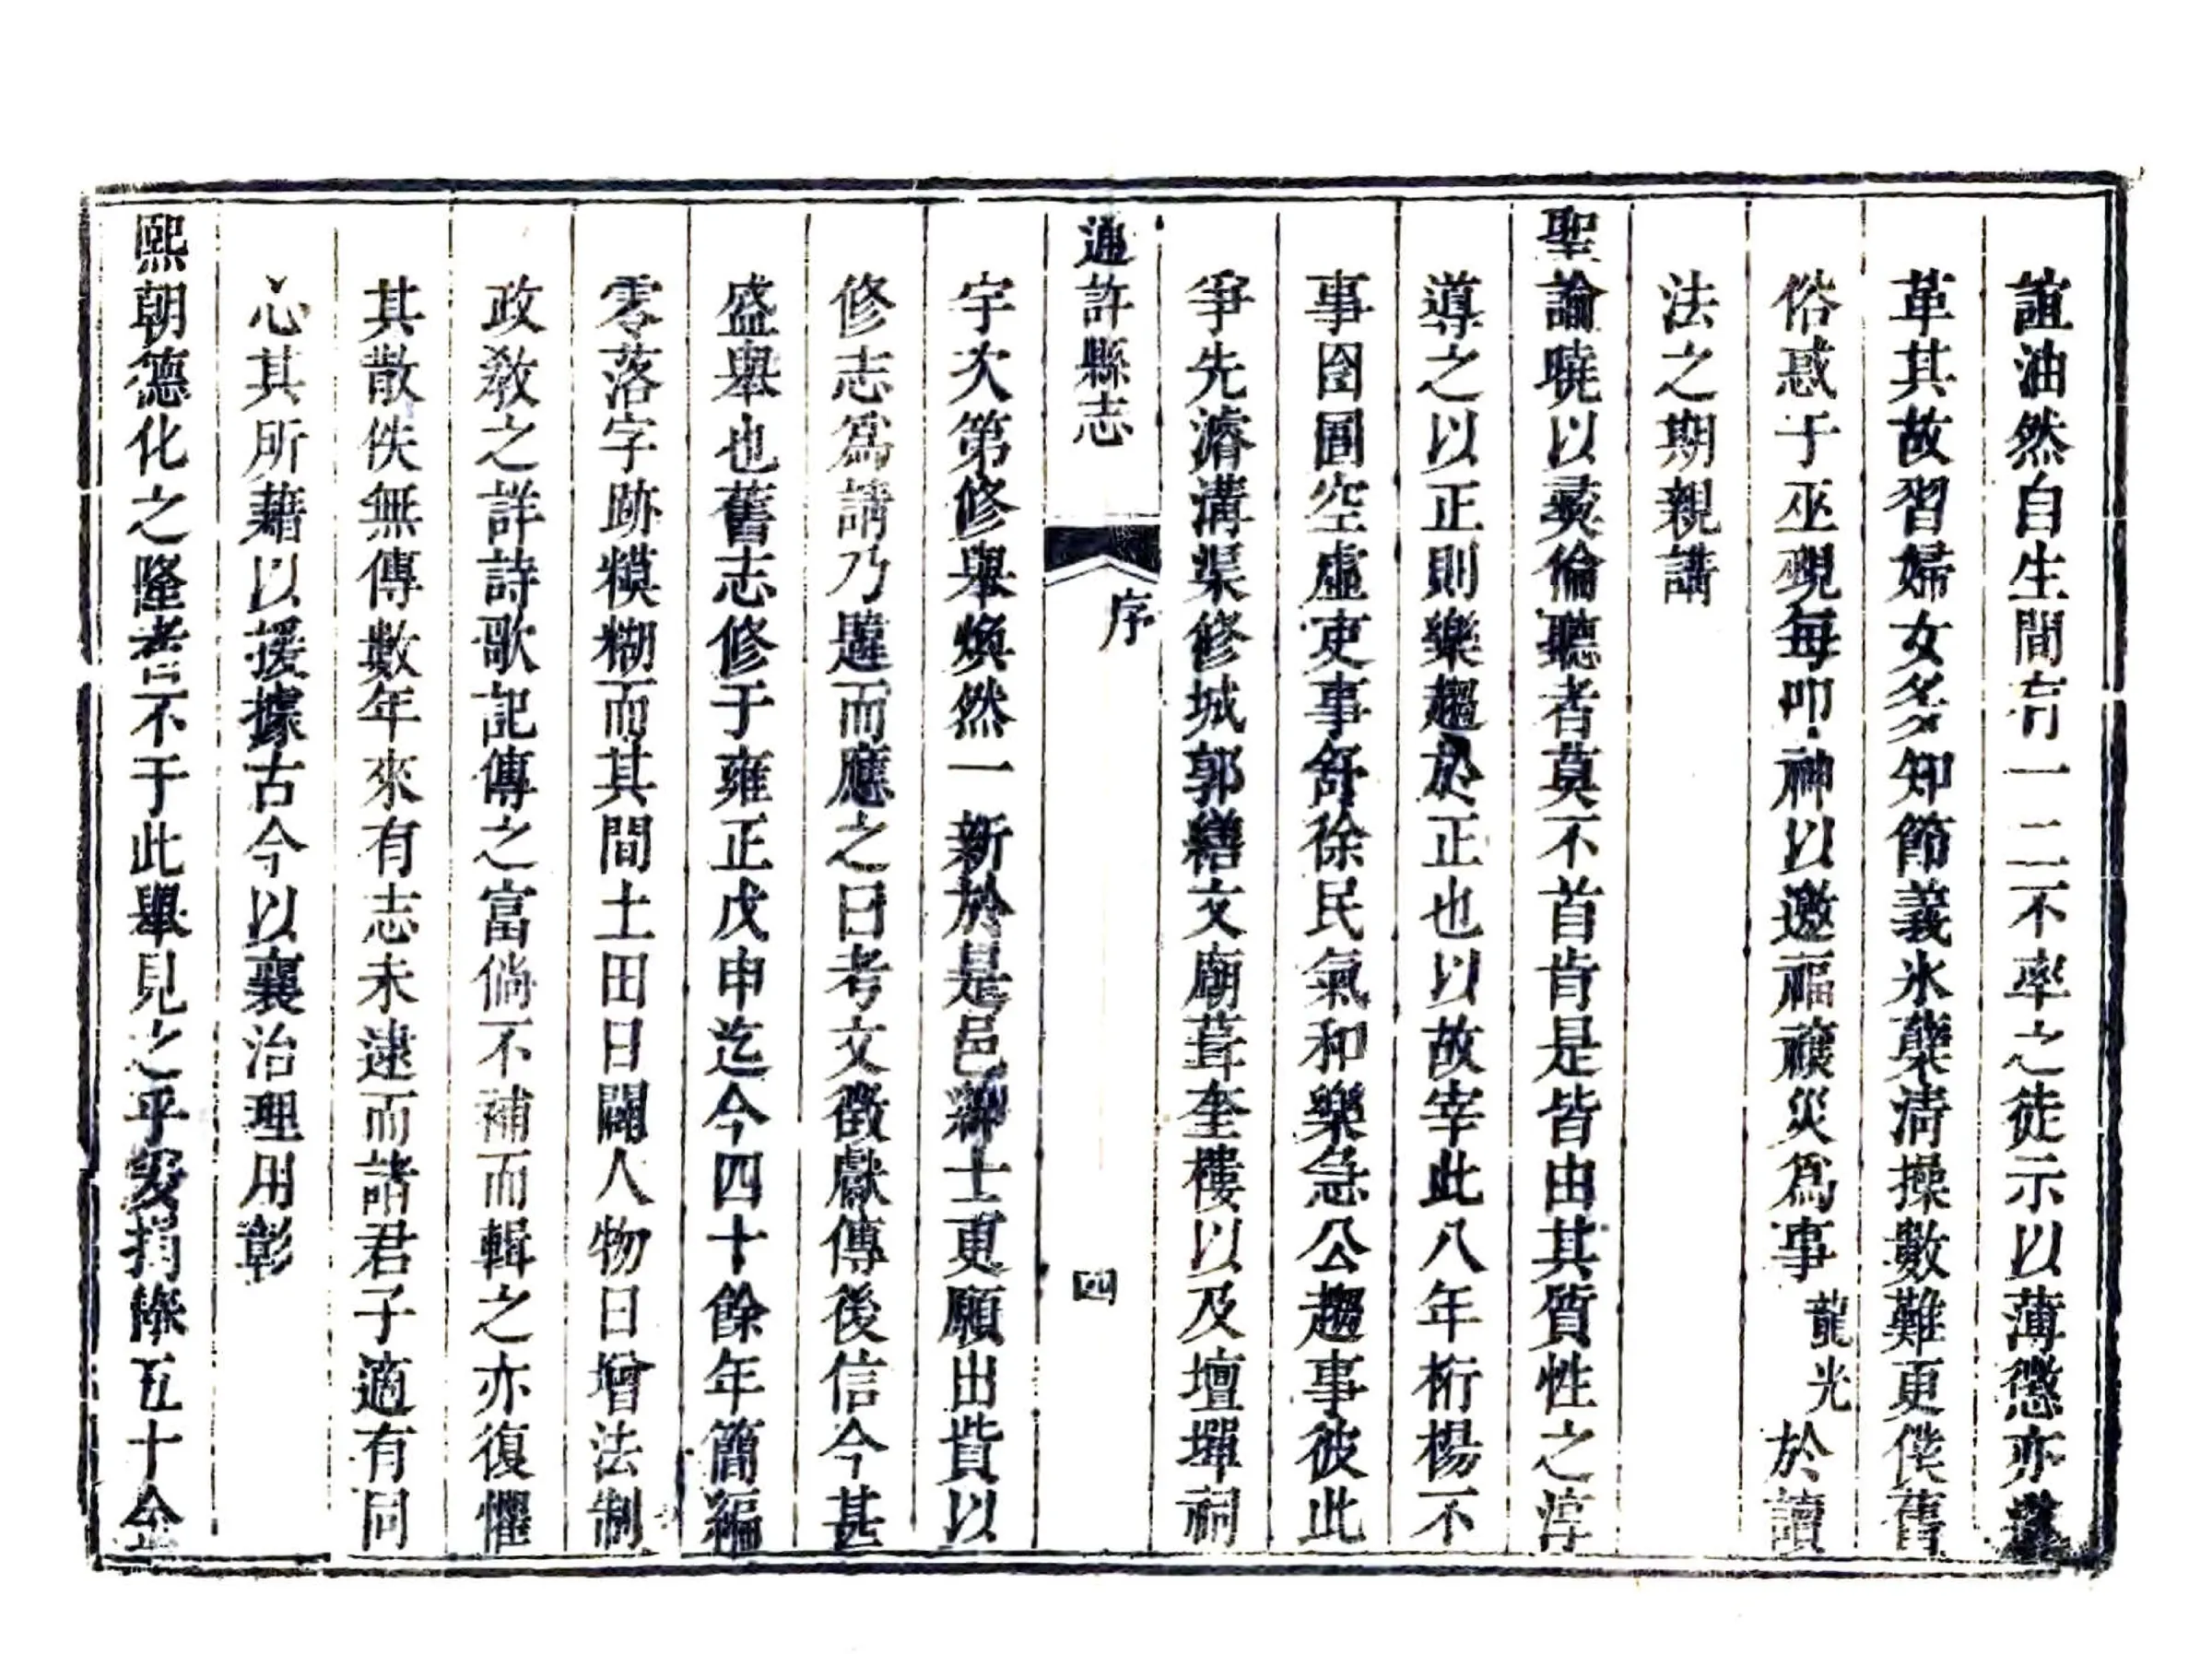 誼油然自生間有一二不率之徒示以薄懲亦
革其故習婦女多知節義氷蘗淸操數難更僕舊
俗惑于巫覡每叩神以邀福禳災爲事龍光於讀
法之期親講
聖諭曉以彛倫聽者莫不首肯是皆由其質性之淳
導之以正則樂趨於正也以故宰此八年桁楊不
事囹圄空虛吏事舒徐民氣和樂急公趨事彼此
爭先濬溝渠修城郭繕文廟葺奎樓以及壇墠祠
通許縣志
序
四
宇次第修舉煥然一新於是邑紳士更願出貲以
修志爲請乃韙而應之曰考文徵獻傳後信今甚
盛舉也舊志修于雍正戊申迄今四十餘年簡編
零落字跡糢糊而其間土田日闢人物日增法制
政敎之詳詩歌記傳之富倘不補而輯之亦復懼
其散佚無傳數年來有志未逮而諸君子適有同
心其所藉以援據古今以襄治理用彰
熙朝德化之隆者不于此舉見之乎爰捐俸五十金